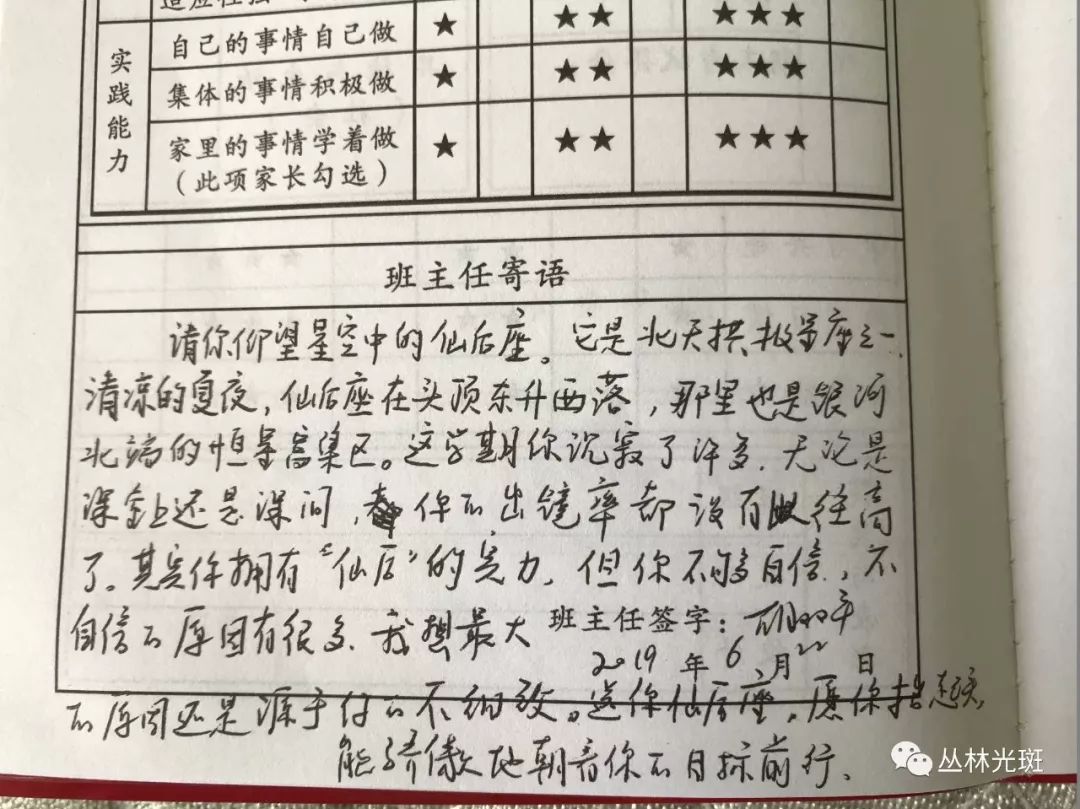 实践能力
自己的事情自己做 ★ ★★ ★★★
集体的事情积极做 ★ ★★ ★★★
家里的事情学着做 ★ ★★ ★★★
（此项家长勾选）
班主任寄语
请你仰望星空中的仙后座。它是北天拱极星座之一,
清凉的夏夜,仙后座在头顶东升西落,那里也是银河
北端的恒星高集区。这学期你沉寂了许多,无论是
课堂上还是课间,你的出镜率都没有以往高
了。其实你拥有“仙后”的实力,但你不够自信,不
自信的原因有很多,我想最大
班主任签字：
2019年6月22日
的原因还是源于付的不细致。送你仙后座,愿你抬起头
能骄傲地朝着你的目标前行。
丛林光斑